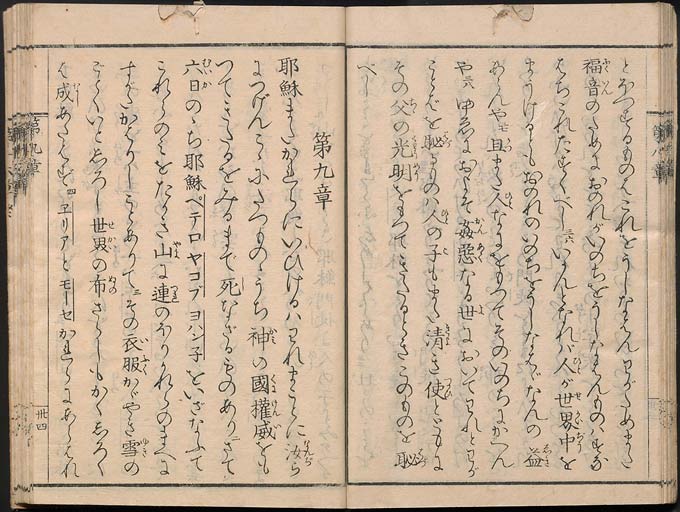 第八章
とほつするものはこれをうしなはんわがためまた
福音のためにおのれがいのちをうしなはんものハすな
はちこれをたすくべし三六いかんとなれバ人が世界中を
まうけるともおのれのいのちをうしなはゞなんの益
あらんや三七且また人なにをもつてそのいのちにかへん
や三八ゆゑにおよそ姦惡なる世においてわれとわが
ことばを恥るものハ人の子もまた清き使とともに
その父の光明をもつてきたるときこのものを恥
べし
第九章
耶穌またかれらにいひけるハわれまことに汝ら
につげんこゝにたつものゝうち神の國權威をも
つてきたるをみるまで死なざるものありさて
六日のゝち耶穌ペテロヤコブヨハン子をいざなふて
これらのミをたかき山に連のぼりかれらのまへに
すがたかはりしことありて三その衣服かゞやき雪の
ごとくいとしろし世界の布さらしもかくしろく
は成あたハず四ヱリアとモーセかれらにあらはれ
第九章
丗四